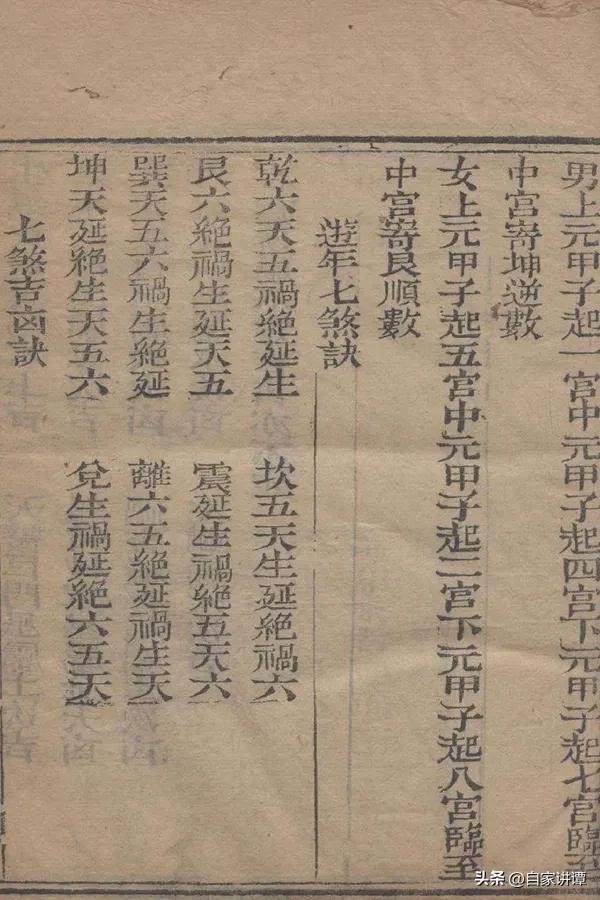 男上元甲子起一宫中元甲子起四宫下元甲子起七宫臨至
中宫寄坤逆數
女上元甲子起五宫中元甲子起二宫下元甲子起八宫臨至
中宫寄艮順數
遊年七煞訣
乾六天五禍絶延生 坎五天生延絶禍六
艮六絶禍生延天五 震延生禍絶五天六
巽天五六禍生絶延 離六五絶延禍生天
坤天延絶生天五六 兌生禍延絶六五天
七煞吉凶訣
头条 @自家讲谭